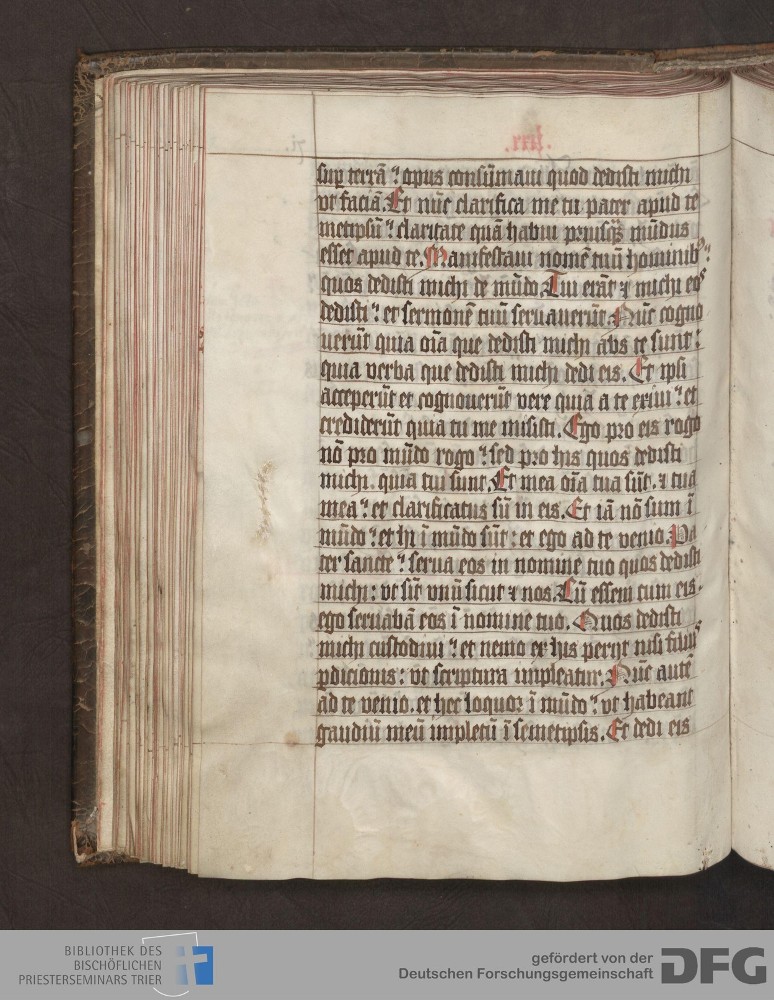 .iiii.
sup terrā ⁊ opus consūmaui quod dedisti michi
vt faciā. Et nūc clarifica me tu pater apud te
metipsū ⁊ claritate quā habui priusq̄ mūdus
esset apud te. Manifestaui nomē tuū hominib⁹ ⁊
quos dedisti michi de mūdo. Tui erāt ⁊ michi eos
dedisti ⁊ et sermonē tuū seruauerūt. Nūc cogno
uerūt quia oīa que dedisti michi abs te sunt ⁊
quia verba que dedisti michi dedi eis. Et ipsi
acceperūt et cognouerūt vere quia a te exiui ⁊ et
crediderūt quia tu me misisti. Ego pro eis rogo
nō pro mūdo rogo ⁊ sed pro his quos dedisti
michi. quia tui sunt. Et mea oīa tua sūt. ⁊ tua
mea ⁊ et clarificatus sū in eis. Et iā nō sum ī
mūdo ⁊ et hi ī mūdo sūt: et ego ad te venio. Pa
ter sancte ⁊ serua eos in nomine tuo quos dedisti
michi: vt sīt vnū sicut ⁊ nos. Cū essem cum eis.
ego seruabā eos ī nomine tuo. Quos dedisti
michi custodiui ⁊ et nemo ex his perijt nisi filius
pdicionis: vt scriptura impleatur. Nūc autē
ad te venio. et hec loquor ī mūdo ⁊ vt habeant
gaudiū meū impletū ī semetipsis. Et dedi eis
BIBLIOTHEK DES
BISCHÖFLICHEN
PRIESTERSEMINARS TRIER
gefördert von der
Deutschen Forschungsgemeinschaft
DFG